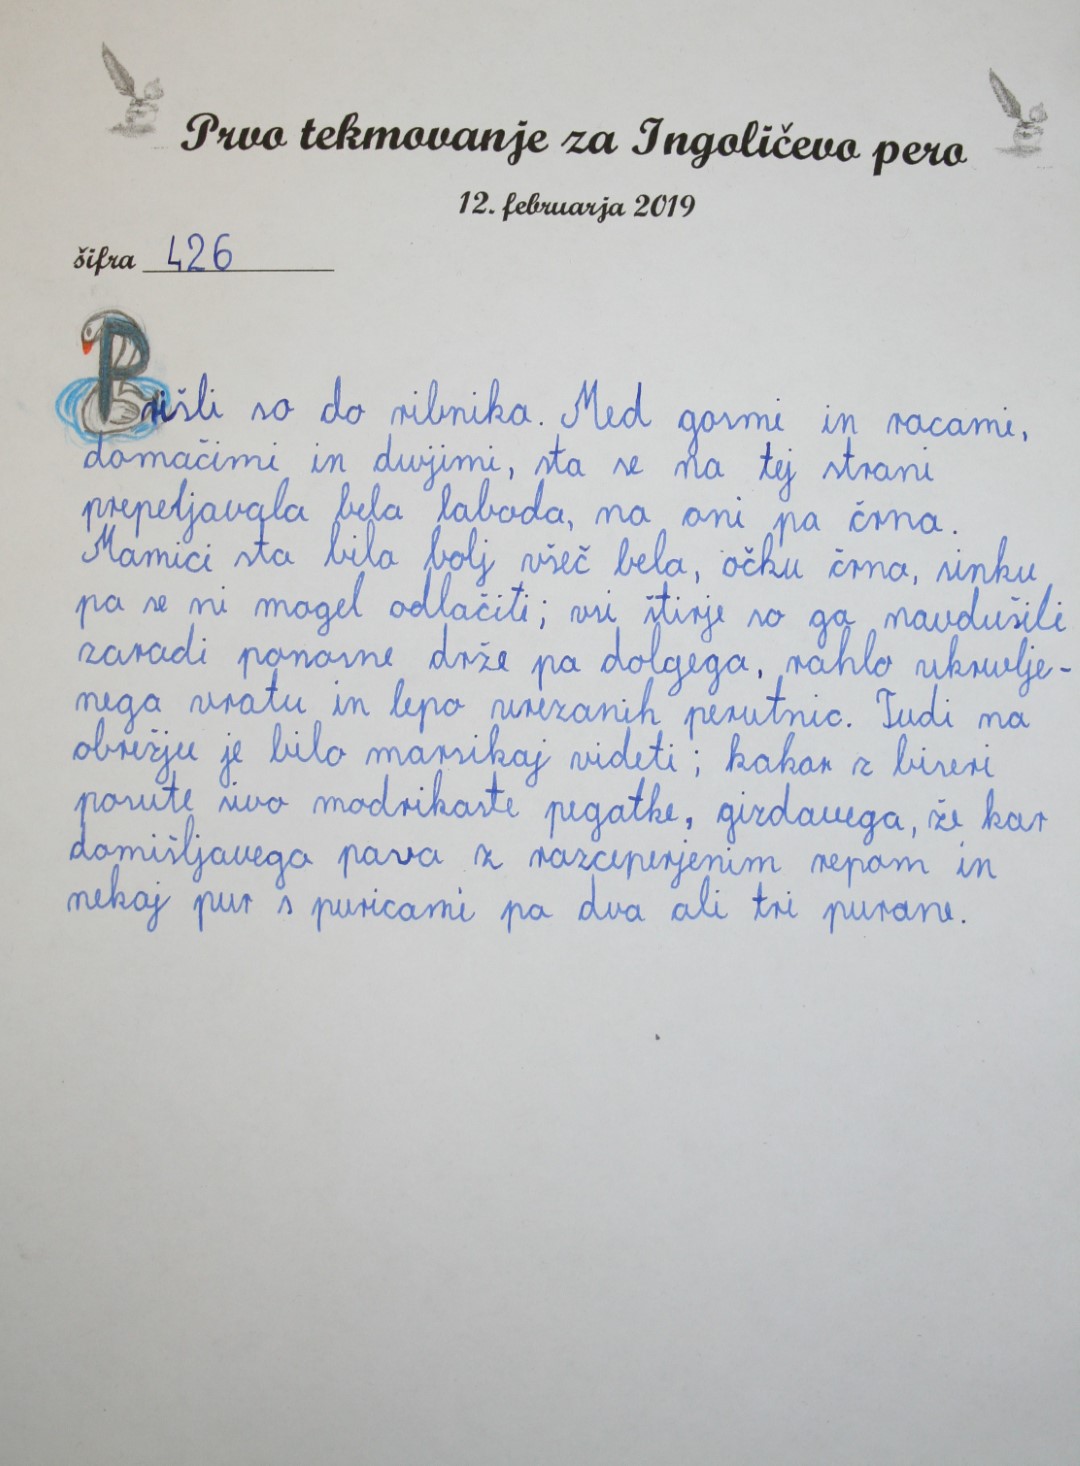 Prvo tekmovanje za Ingoličevo pero
12. februarja 2019
šifra 426
Prišli so do ribnika. Med gosmi in racami,
domačimi in divjimi, sta se na tej strani
prepeljavala bela laboda, na oni pa črna.
Mamici sta bila bolj všeč bela, očku črna, sinku
pa se ni mogel odlačiti; vsi štirje so ga navdušili
zaradi ponosne drže pa dolgega, rahlo ukrivlje-
nega vratu in lepo urezanih perutnic. Tudi na
obrežju je bilo marsikaj videti; kakor z biseri
posute sivo modrikaste pegatke, gizdavega, že kar
domišljavega pava z razceperjenim repom in
nekaj pur s puricami pa dva ali tri purane.